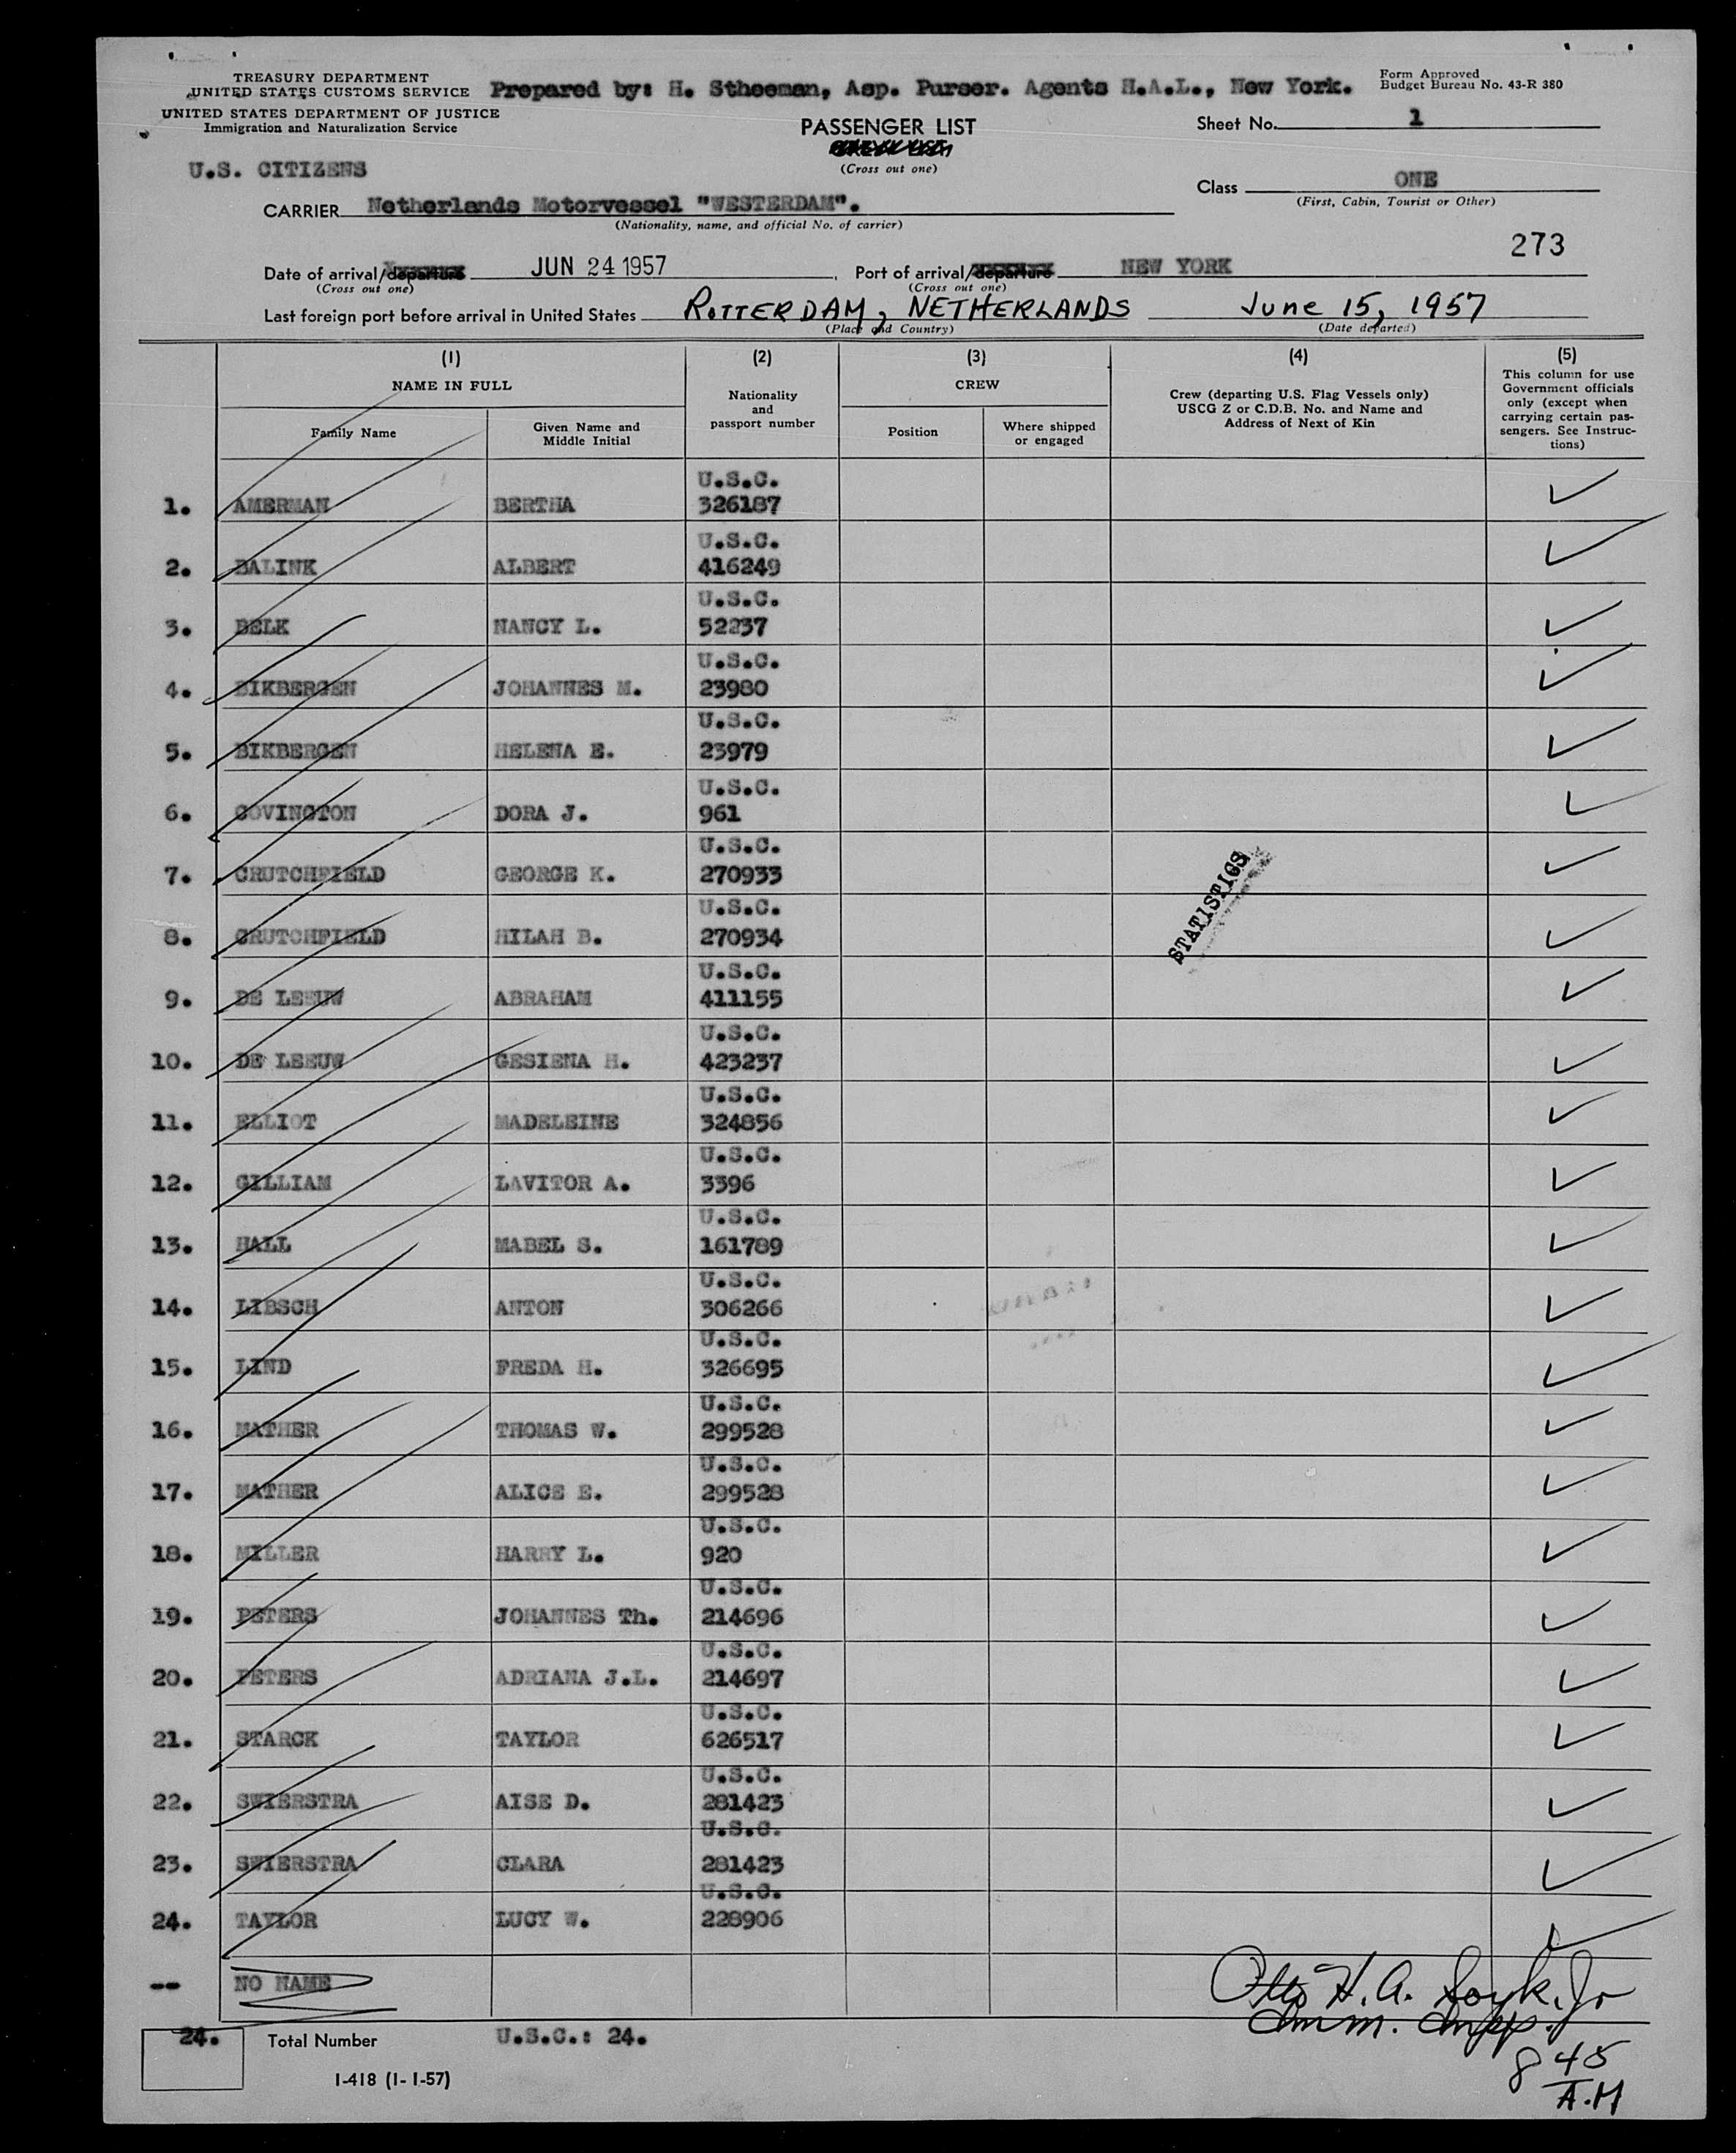 TREASURY DEPARTMENT
UNITED STATES CUSTOMS SERVICE
UNITED STATES DEPARTMENT OF JUSTICE
Immigration and Naturalization Service
Prepared by: H. Stheeman, Asp. Purser. Agents H.A.L., New York.
Form Approved
Budget Bureau No. 43-R 380
PASSENGER LIST
(Cross out one)
Sheet No. 1
U.S. CITIZENS
Class ONE
(First, Cabin, Tourist or Other)
CARRIER Netherlands Motorvessel "WESTERDAM".
(Nationality, name, and official No. of carrier)
273
Date of arrival/departure JUN 24 1957 Port of arrival/departure NEW YORK
(Cross out one) (Cross out one)
Last foreign port before arrival in United States ROTTERDAM, NETHERLANDS June 15, 1957
(Place and Country) (Date departed)
(1) (2) (3) (4) (5)
NAME IN FULL
Family Name
Given Name and
Middle Initial
Nationality
and
passport number
CREW
Position
Where shipped
or engaged
Crew (departing U.S. Flag Vessels only)
USCG Z or C.D.B. No. and Name and
Address of Next of Kin
This column for use
Government officials
only (except when
carrying certain pas-
sengers. See Instruc-
tions)
U.S.C.
1. AMERMAN BERTHA 326187
U.S.C.
2. BALINK ALBERT 416249
U.S.C.
3. BELK NANCY L. 52237
U.S.C.
4. BIKBERGEN JOHANNES M. 23980
U.S.C.
5. BIKBERGEN HELENA E. 23979
U.S.C.
6. COVINGTON DORA J. 961
U.S.C.
7. CRUTCHFIELD GEORGE K. 270933
U.S.C.
8. CRUTCHFIELD HILAH B. 270934
STATISTICS
U.S.C.
9. DE LEEUW ABRAHAM 411155
U.S.C.
10. DE LEEUW GESIENA H. 423237
U.S.C.
11. ELLIOT MADELEINE 324856
U.S.C.
12. GILLIAM LAVITOR A. 3396
U.S.C.
13. HALL MABEL S. 161789
U.S.C.
14. LIBSCH ANTON 306266
U.S.C.
15. LIND FREDA H. 326695
U.S.C.
16. MATHER THOMAS W. 299528
U.S.C.
17. MATHER ALICE E. 299528
U.S.C.
18. MILLER HARRY L. 920
U.S.C.
19. PETERS JOHANNES Th. 214696
U.S.C.
20. PETERS ADRIANA J.L. 214697
U.S.C.
21. STARCK TAYLOR 626517
U.S.C.
22. SWIERSTRA AISE D. 281423
U.S.C.
23. SWIERSTRA CLARA 281423
U.S.C.
24. TAYLOR LUCY W. 228906
-- NO NAME
Otto H. A. Jr
Imm. Insp.
24. Total Number U.S.C.: 24.
I-418 (1-1-57)
8 45
A.M